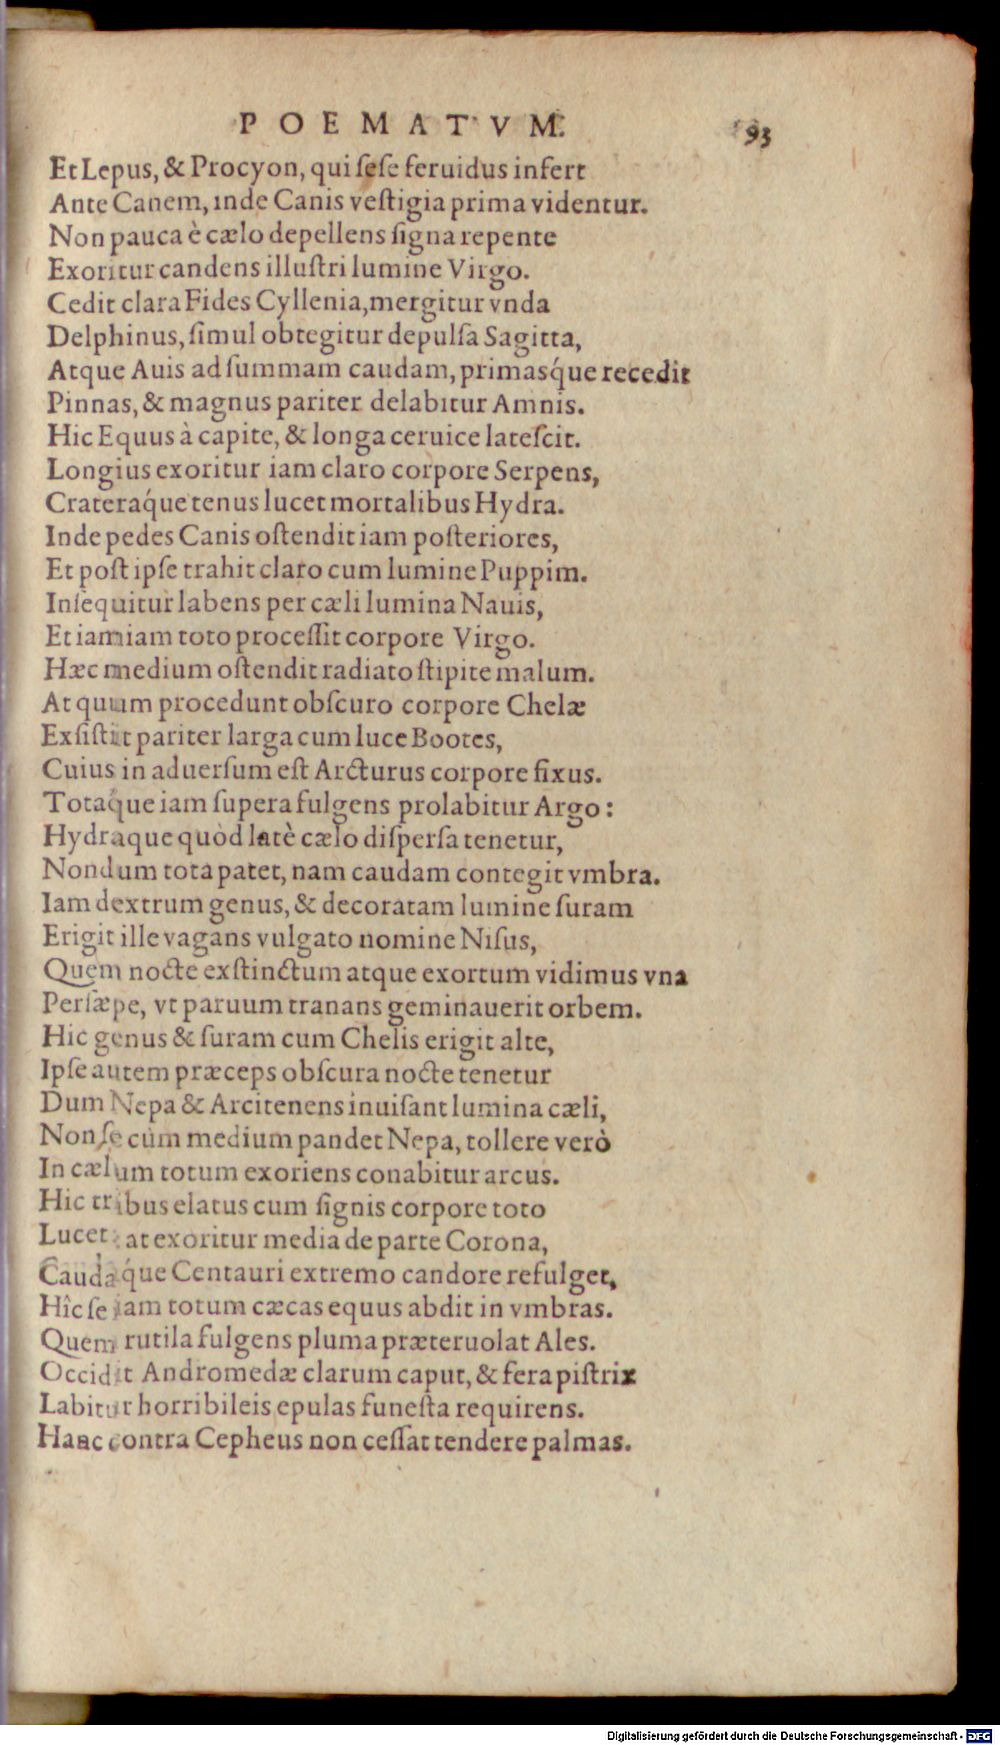 POEMATVM. 93
Et Lepus, & Procyon, qui ſeſe feruidus infert
Ante Canem, inde Canis veſtigia prima videntur.
Non pauca è cælo depellens ſigna repente
Exoritur candens illuſtri lumine Virgo.
Cedit clara Fides Cyllenia, mergitur vnda
Delphinus, ſimul obtegitur depulſa Sagitta,
Atque Auis ad ſummam caudam, primasq́ue recedit
Pinnas, & magnus pariter delabitur Amnis.
Hic Equus à capite, & longa ceruice lateſcit.
Longius exoritur iam claro corpore Serpens,
Crateraq́ue tenus lucet mortalibus Hydra.
Inde pedes Canis oſtendit iam poſteriores,
Et poſt ipſe trahit claro cum lumine Puppim.
Inſequitur labens per cæli lumina Nauis,
Et iamiam toto proceſſit corpore Virgo.
Hæc medium oſtendit radiato ſtipite malum.
At quum procedunt obſcuro corpore Chelæ
Exſiſtit pariter larga cum luce Bootes,
Cuius in aduerſum eſt Arcturus corpore fixus.
Totaq́ue iam ſupera fulgens prolabitur Argo:
Hydraque quòd latè cælo diſperſa tenetur,
Nondum tota patet, nam caudam contegit vmbra.
Iam dextrum genus, & decoratam lumine ſuram
Erigit ille vagans vulgato nomine Niſus,
Quem nocte exſtinctum atque exortum vidimus vna
Perſæpe, vt paruum tranans geminauerit orbem.
Hic genus & ſuram cum Chelis erigit alte,
Ipſe autem præceps obſcura nocte tenetur
Dum Nepa & Arcitenens inuiſant lumina cæli,
Non ſe cùm medium pandet Nepa, tollere verò
In cælum totum exoriens conabitur arcus.
Hic tribus elatus cum ſignis corpore toto
Lucet: at exoritur media de parte Corona,
Caudaq́ue Centauri extremo candore refulget,
Hîc ſe iam totum cæcas equus abdit in vmbras.
Quem rutila fulgens pluma præteruolat Ales.
Occidit Andromedæ clarum caput, & fera piſtrix
Labitur horribileis epulas funeſta requirens.
Hanc contra Cepheus non ceſſat tendere palmas.
Digitalisierung gefördert durch die Deutsche Forschungsgemeinschaft - DFG